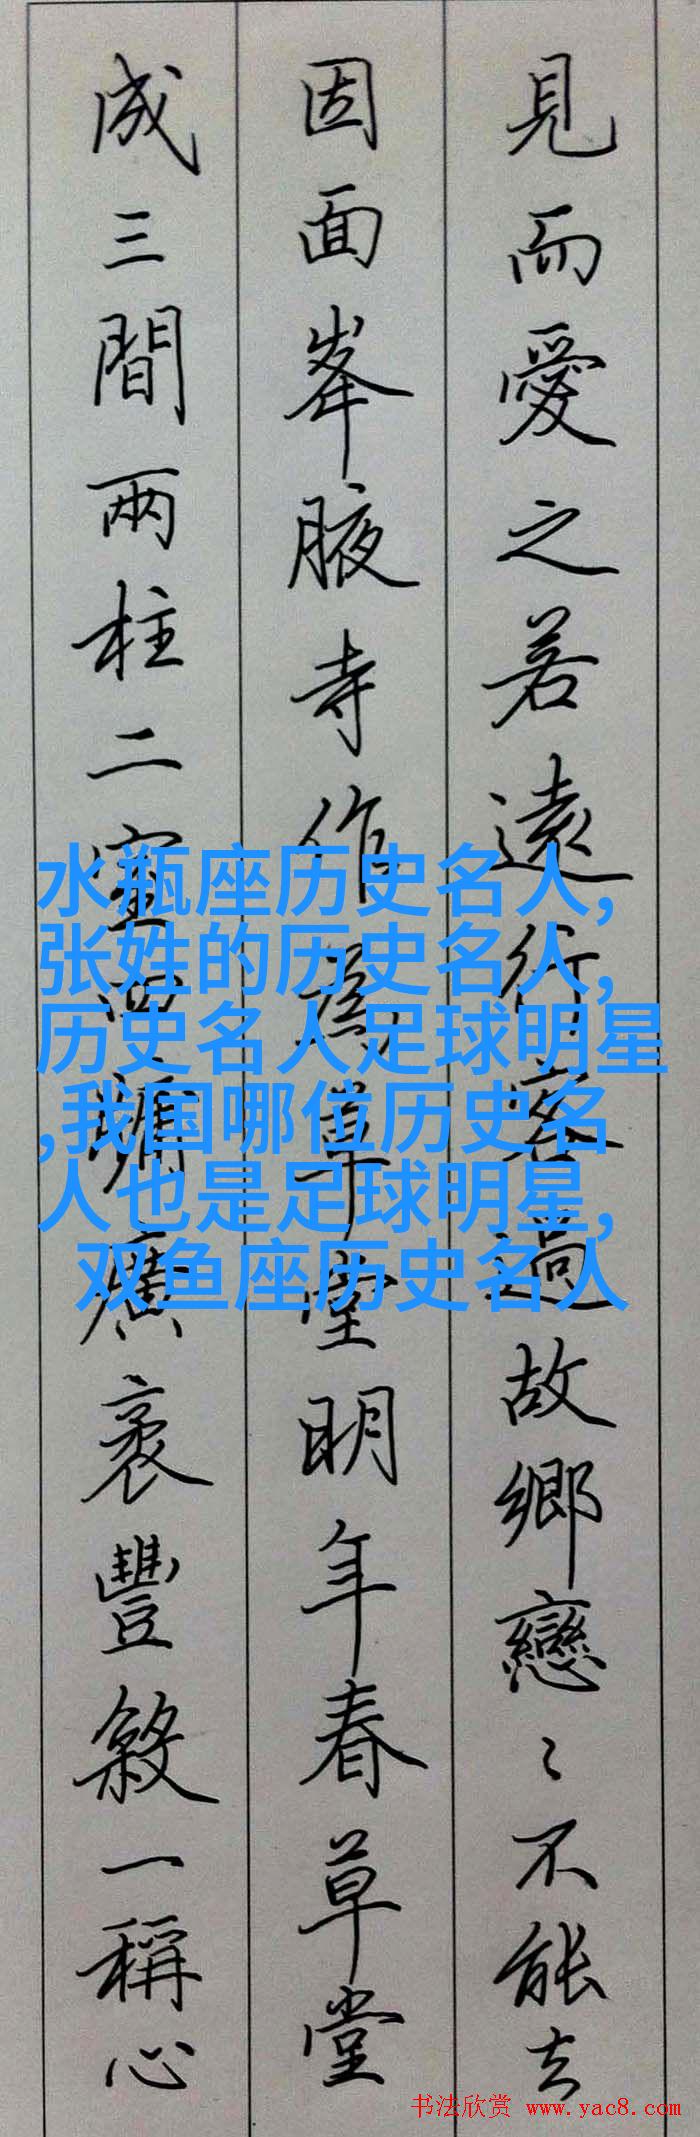 見而愛之若遠行客過故鄉戀〻不能去
因面峯腋寺作為草堂明年春草堂
成三間兩柱二室四牖廣袤豐殺一稱心
水瓶座历史名人,
张姓的历史名人,
历史名人足球明星
,我国哪位历史名
人也是足球明星,
双鱼座历史名人
书法欣赏 www.yac8.com